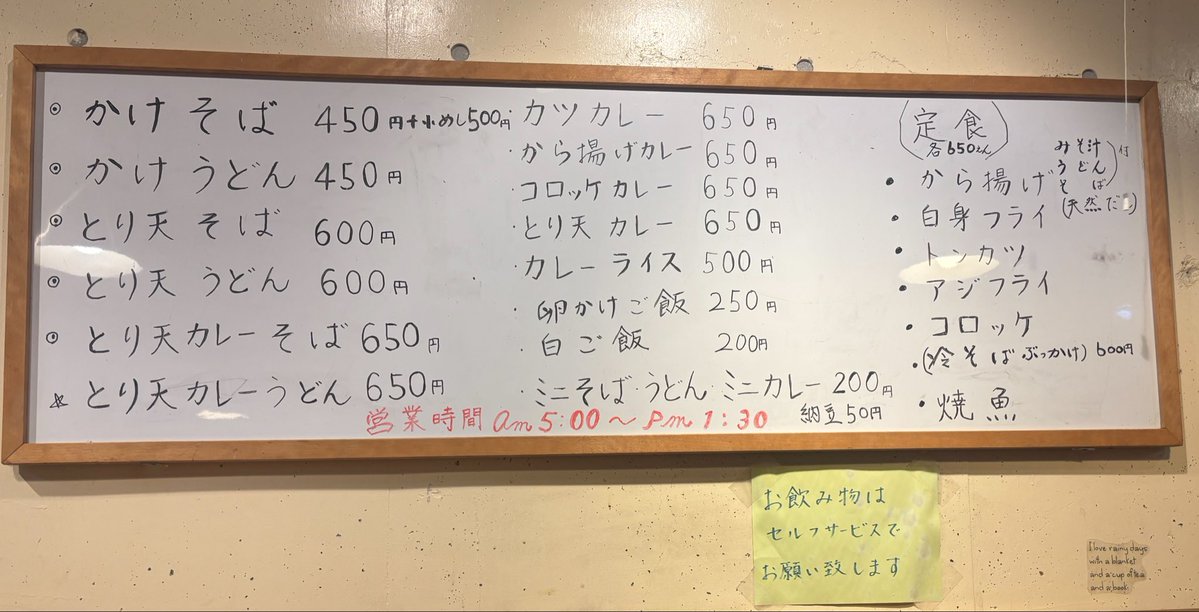 かけそば 450円+小めし500円
かけうどん 450円
とり天そば 600円
とり天うどん 600円
とり天カレーそば 650円
とり天カレーうどん 650円
・カツカレー 650円
・から揚げカレー 650円
・コロッケカレー 650円
・とり天カレー 650円
・カレーライス 500円
・卵かけご飯 250円
・白ご飯 200円
・ミニそば・うどん・ミニカレー 200円
納豆 50円
営業時間 am 5:00 〜 Pm 1:30
(定食)
各650えん
みそ汁
うどん
そば
付
(天然だし)
・から揚げ
・白身フライ
・トンカツ
・アジフライ
・コロッケ
・(冷そばぶっかけ) 600円
・焼魚
お飲み物は
セルフサービスで
お願い致します
I love rainy days
with a blanket
and a cup of tea
and a book